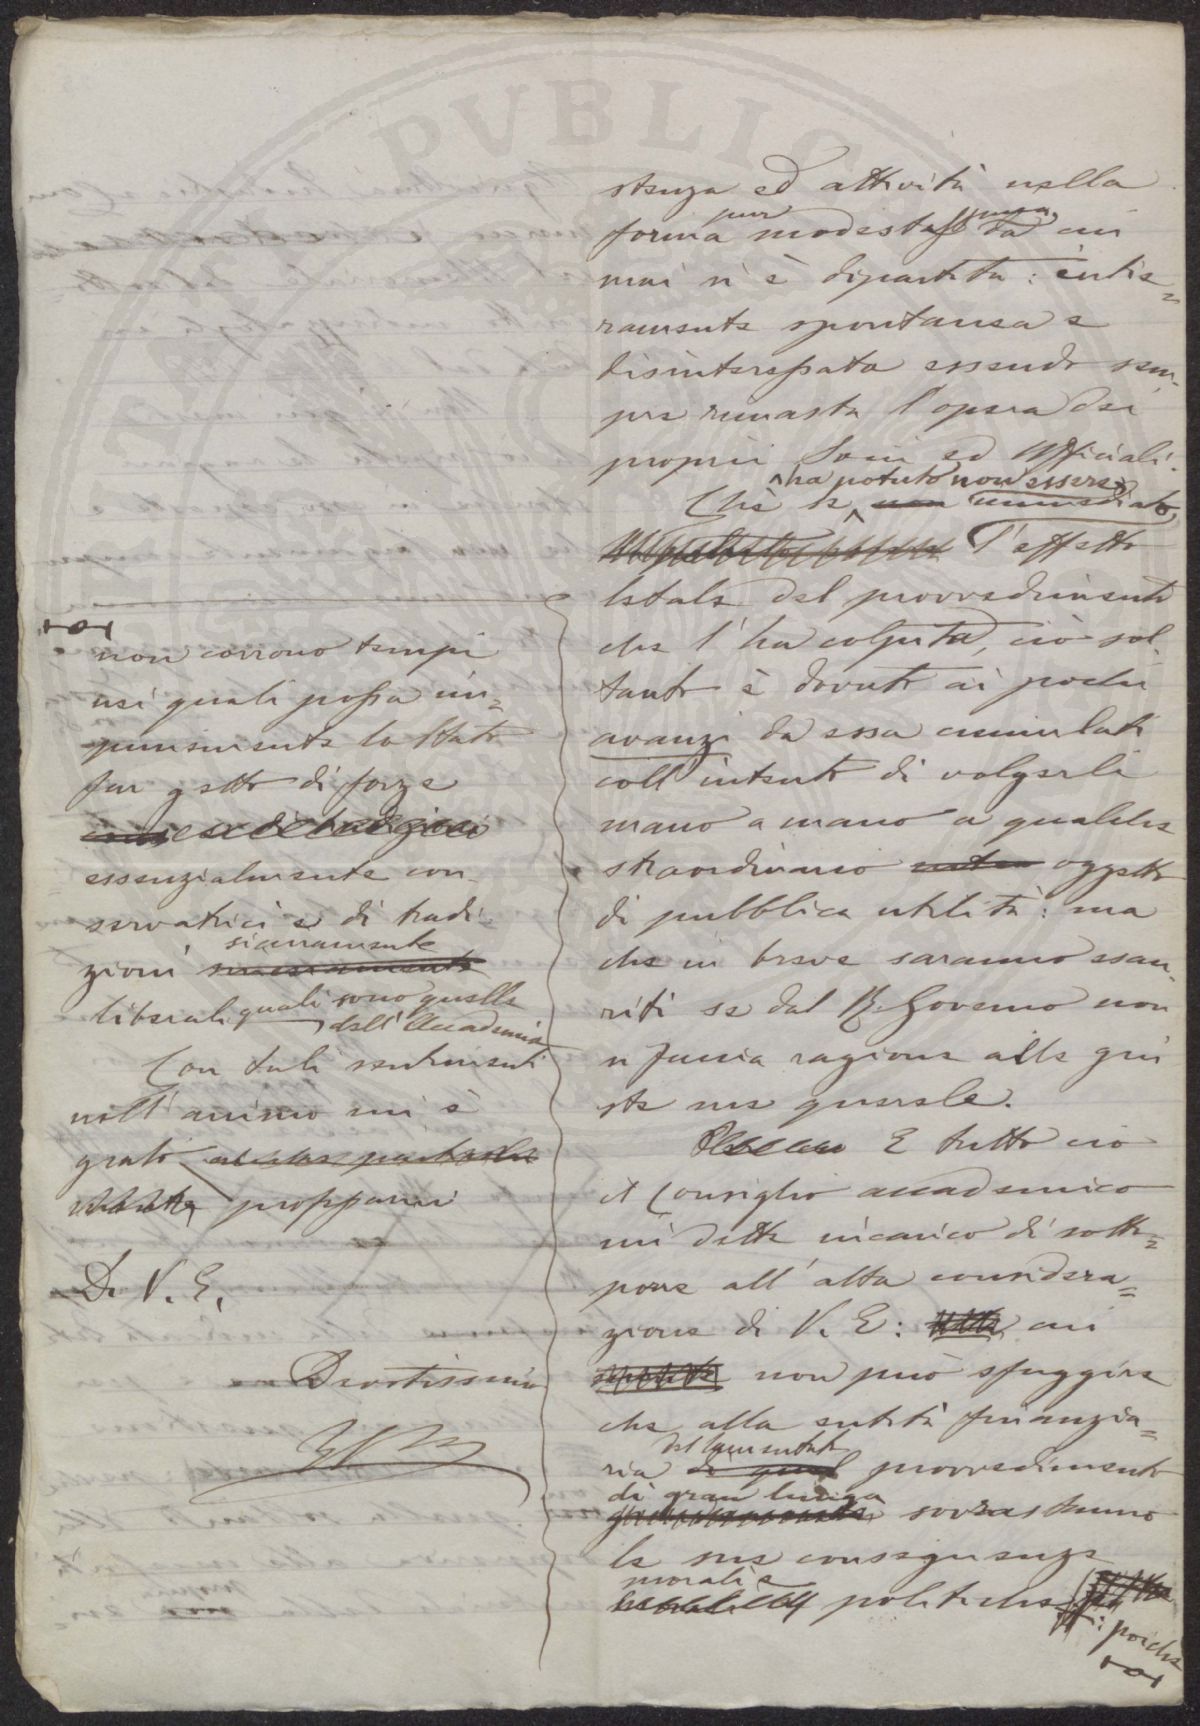 PVBLIC
stenza ed attività nella
forma pur modesta da cui
mai si è dipartita: intie=
ramente spontanea e
disinteressata essendo sem-
pre rimasta l'opera dei
proprii Socii ed Ufficiali.
Chè se ha potuto non essere immediato,
l'effetto
letale del provvedimento
che l'ha colpita, ciò sol-
tanto è dovuto ai pochi
avanzi da essa cumulati
coll'intento di volgerli
mano a mano a qualche
straordinario oggetto
di pubblica utilità: ma
che in breve saranno esau-
riti se dal R. Governo non
si faccia ragione alle giu
ste sue querele.
E tutto ciò
il Consiglio accademico
mi dette incarico di sotto=
porre all'alta considera=
zione di V. E: cui
non può sfuggire
che alla entità finanzia=
ria del lamentato provvedimento
di gran lunga sovrastanno
le sue conseguenze
morali e politiche: poichè
non corrono tempi
nei quali possa im=
punemente lo Stato
far getto di forze
essenzialmente con-
servatrici e di tradi-
zioni sicuramente
liberali quali sono quelle
dell'Accademia
Con tali sentimenti
nell'animo mi è
grato profferirmi
Di V. E.
Devotissimo